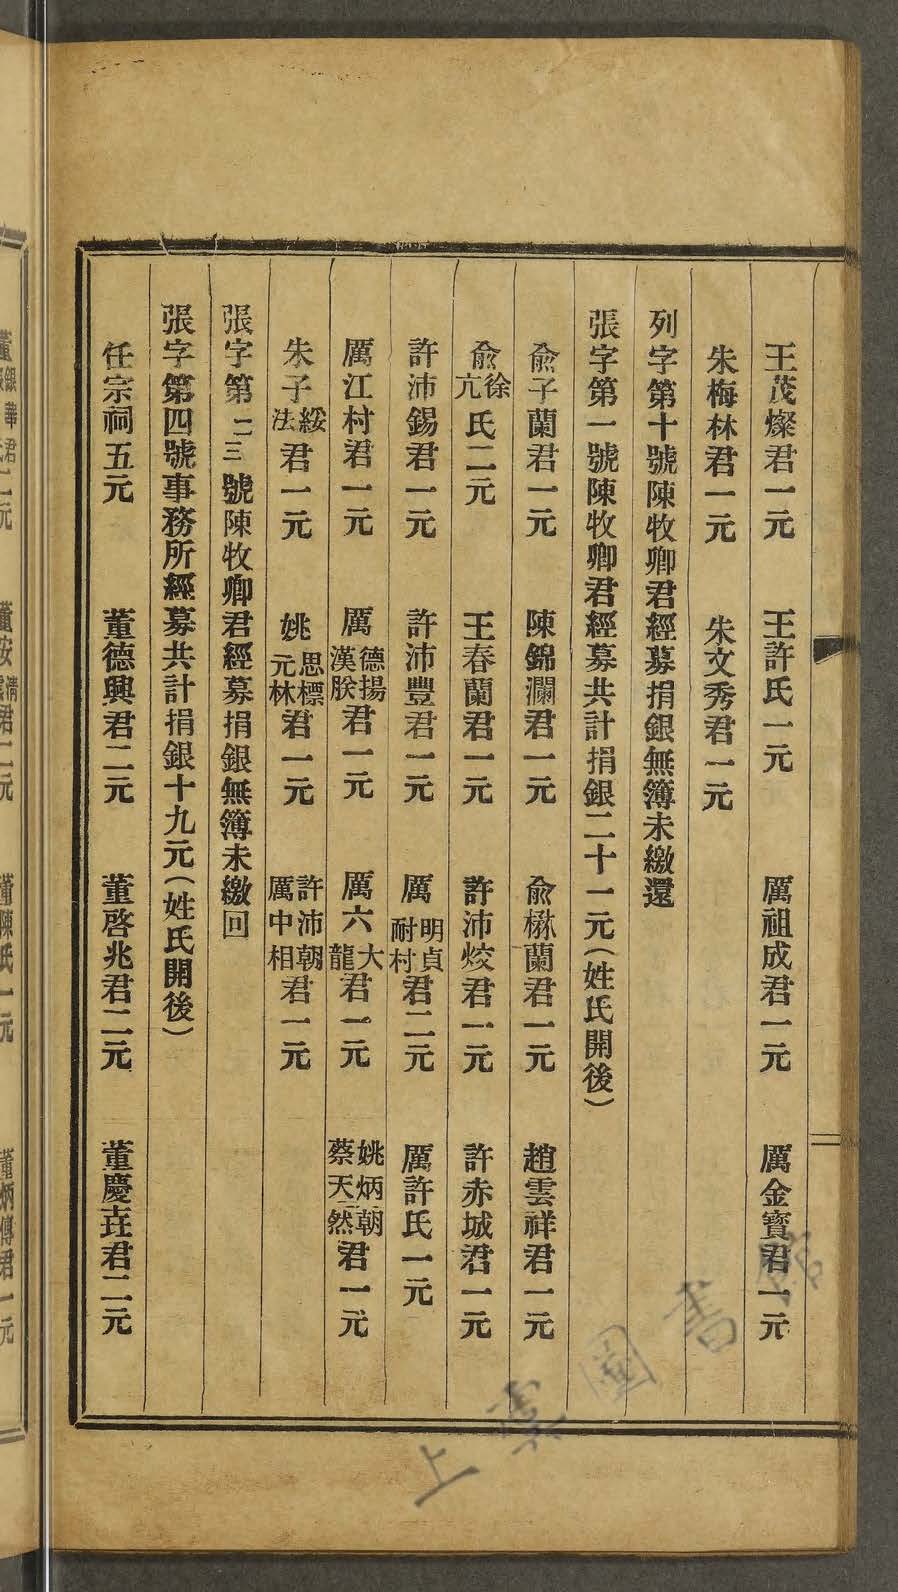 王茂燦君一元　王許氏一元　厲祖成君一元　厲金寳君一元
朱梅林君一元　朱文秀君一元
列字第十號陳牧卿君經募捐銀無簿未繳還
張字第一號陳牧卿君經募共計捐銀二十一元(姓氏開後)
兪子蘭君一元　陳錦瀾君一元　兪楙蘭君一元　趙雲祥君一元
兪徐亢氏二元　王春蘭君一元　許沛烄君一元　許赤城君一元
許沛錫君一元　許沛豐君一元　厲明貞耐村君二元　厲許氏一元
厲江村君一元　厲德揚漢朕君一元　厲六大龍君一元　姚炳朝蔡天然君一元
朱子綏法君一元　姚思標元林君一元　許沛朝厲中相君一元
張字第二三號陳牧卿君經募捐銀無簿未繳回
張字第四號事務所經募共計捐銀十九元(姓氏開後)
任宗祠五元　董德興君二元　董啓兆君二元　董慶君二元
上虞圖書館